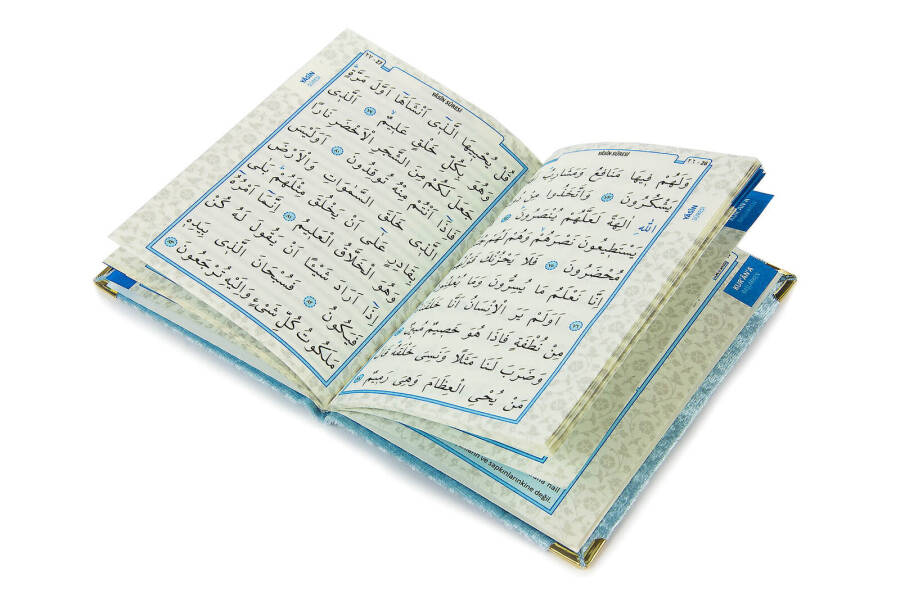 YÂSÎN SÛRESİ
٢٦ - 26
YÂSİN
SÛRESİ
وَلَهُمْ فِيهَا مَنَافِعُ وَمَشَارِبُ
يَشْكُرُونَ ﴿٧٣﴾ وَاتَّخَذُوا مِنْ
اللّٰهِ اٰلِهَةً لَعَلَّهُمْ يُنْصَرُونَ
يَسْتَطِيعُونَ نَصْرَهُمْ وَهُمْ لَهُمْ
مُحْضَرُونَ ﴿٧٥﴾ فَلَا يَحْزُنْكَ
اِنَّا نَعْلَمُ مَا يُسِرُّونَ وَمَا
اَوَلَمْ يَرَ الْاِنْسَانُ اَنَّا
مِنْ نُطْفَةٍ فَاِذَا هُوَ خَصِيمٌ مُبِينٌ
وَضَرَبَ لَنَا مَثَلًا وَنَسِيَ خَلْقَهُ قَالَ
مَنْ يُحْيِي الْعِظَامَ وَهِيَ رَمِيمٌ ﴿٧٨﴾
YÂSÎN SÛRESİ
٢٧ - 27
YÂSİN
SÛRESİ
قُلْ يُحْيِيهَا الَّذِٓى اَنْشَاَهَٓا اَوَّلَ مَرَّةٍ
وَهُوَ بِكُلِّ خَلْقٍ عَلِيمٌ ﴿٧٩﴾ اَلَّذِى
جَعَلَ لَكُمْ مِنَ الشَّجَرِ الْاَخْضَرِ نَارًا
فَاِذَٓا اَنْتُمْ مِنْهُ تُوقِدُونَ ﴿٨٠﴾ اَوَلَيْسَ
الَّذِى خَلَقَ السَّمٰوَاتِ وَالْاَرْضَ
بِقَادِرٍ عَلٰٓى اَنْ يَخْلُقَ مِثْلَهُمْ بَلٰى
وَهُوَ الْخَلَّاقُ الْعَلِيمُ ﴿٨١﴾ اِنَّمَٓا اَمْرُهُٓ
اِذَٓا اَرَادَ شَيْـًٔا اَنْ يَقُولَ لَهُ كُنْ
فَيَكُونُ ﴿٨٢﴾ فَسُبْحَانَ الَّذِى بِيَدِهِ
مَلَكُوتُ كُلِّ شَىْءٍ وَاِلَيْهِ تُرْجَعُونَ ﴿٨٣﴾
KUR'ÂN'A
nail
ve sapkınlarınkine değil.